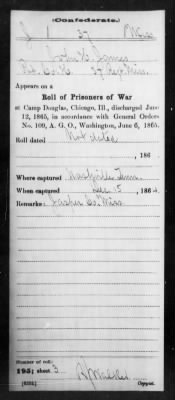 (Confederate.)
J 1 37 Miss.
John H. James
Pvt. Co. H. 37 Reg. Miss.
Appears on a
Roll of Prisoners of War
at Camp Douglas, Chicago, Ill., discharged June
12, 1865, in accordance with General Orders
No. 109, A. G. O., Washington, June 6, 1865.
Roll dated Not dated
, 186
Where captured Nashville Tenn.
When captured Dec. 15, 1864.
Remarks: Jasper Co. Miss.
Number of roll:
195; sheet 3
(635b) Copyist.